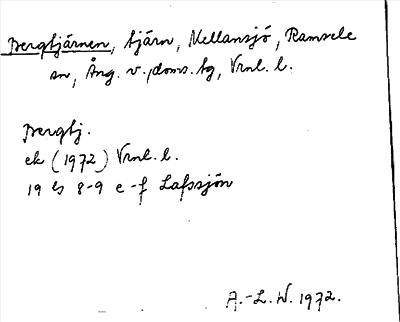 Bergtjärnen, tjärn, Mellansjö, Ramsele
sn, Ång. v. doms. tg, Vrnl. l.
Bergtj.
ek (1972) Vrnl. l.
19 G 8-9 e-f Lafssjön
A.-L. W. 1972.